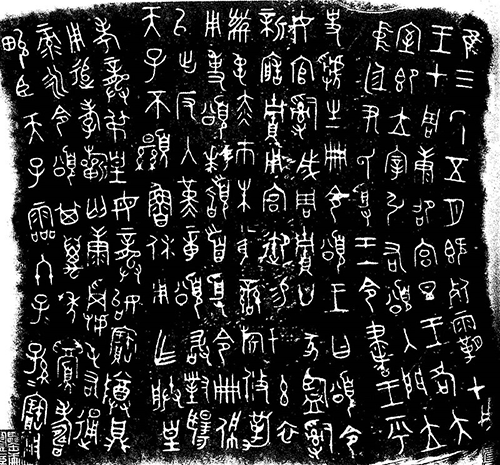 隹三年五月既死霸甲戌
王才周康卲宮旦王各大
室即立宰引右頌入門立
中廷尹氏受王令書王乎
史虢生冊令頌王曰頌令
女官𤔲成周貯廿家監𤔲
新造貯用宮御易女玄衣
黹屯赤巿朱黃鑾旂攸勒
用事頌拜稽首受令冊佩
以出反入堇章頌敢對揚
天子不顯魯休用乍朕皇
考龏弔皇母龏始寶尊鼎
用追孝祈匄康𩛥屯右通
彔永令頌其萬年眉壽
畯臣天子霝冬子=孫=寶用